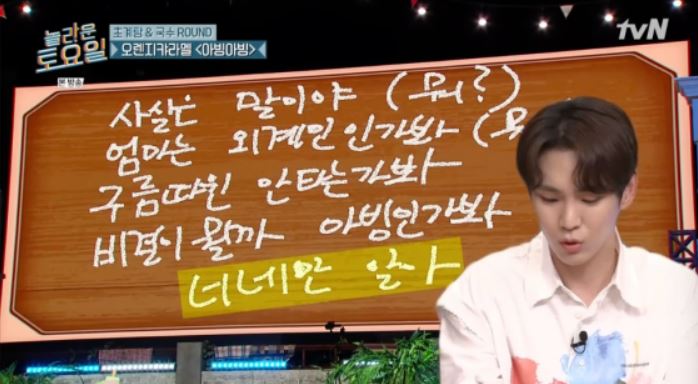 놀라운
토요일
본 방송
초계탕 & 국수 ROUND
오렌지카라멜 <아빙아빙>
tvN
사실은 말이야 (뭐?)
엄마는 외계인인가봐 (
구름따윈 안타는가봐
비결이 뭘까 아빙인가봐
너네만 알아